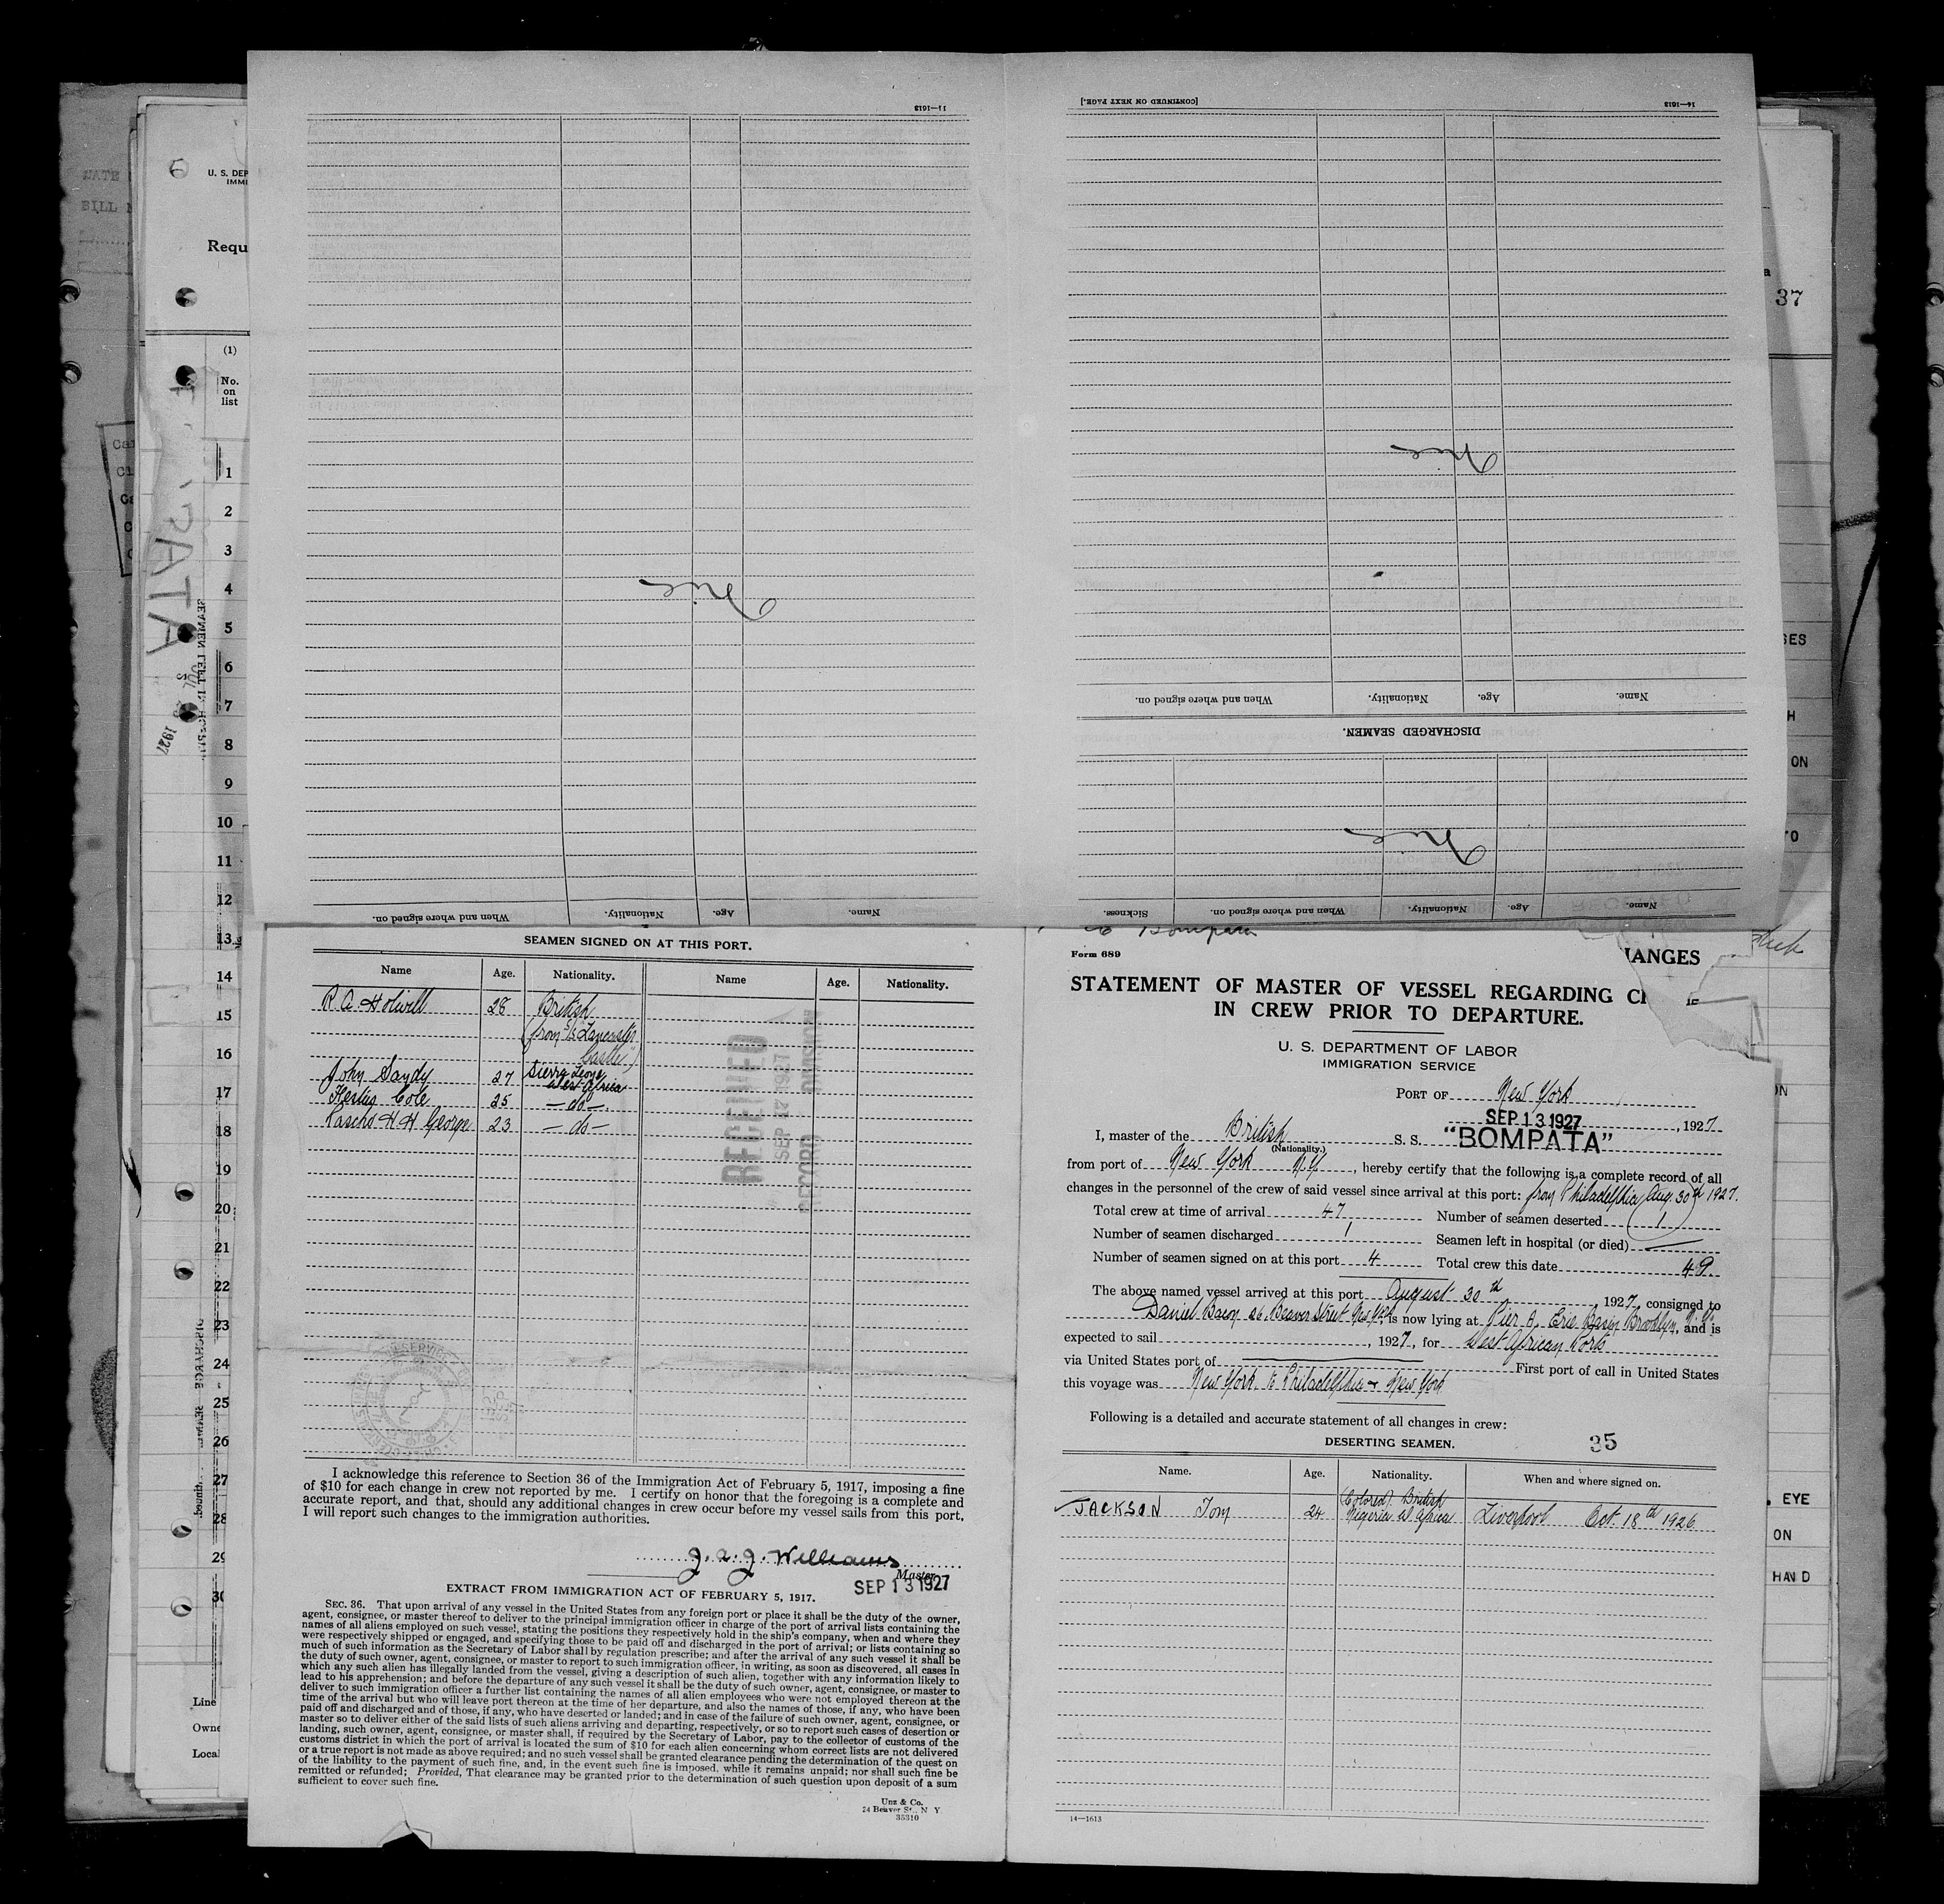 11—1613
[CONTINUED ON NEXT PAGE.]
14—1613
Nil
Nil
Name.
Age.
Nationality.
When and where signed on.
DISCHARGED SEAMEN.
Nil
Name.
Age.
Nationality.
When and where signed on.
Name.
Age.
Nationality.
When and where signed on.
Sickness.
U. S. DEP
IMMI
Requ
(1)
No.
on
list
1
2
3
4
5
6
7
8
9
10
11
12
13
14
15
16
17
18
19
20
21
22
23
24
25
26
27
28
29
30
Line
Owne
Local
37
ON
EYE
ON
HAND
SEAMEN SIGNED ON AT THIS PORT.
Name Age. Nationality. Name Age. Nationality.
R. A. Holwell 28 British
(from S/S Lancaster
Castle")
John Sandy 27 Sierra Leone
West Africa
Cole 25 — do —.
H H George 23 — do —
RECEIVED
SEP 14 1927
RECORD DIVISION
I acknowledge this reference to Section 36 of the Immigration Act of February 5, 1917, imposing a fine
of $10 for each change in crew not reported by me. I certify on honor that the foregoing is a complete and
accurate report, and that, should any additional changes in crew occur before my vessel sails from this port,
I will report such changes to the immigration authorities.
J. A. J. Williams
Master.
SEP 13 1927
EXTRACT FROM IMMIGRATION ACT OF FEBRUARY 5, 1917.
SEC. 36. That upon arrival of any vessel in the United States from any foreign port or place it shall be the duty of the owner,
agent, consignee, or master thereof to deliver to the principal immigration officer in charge of the port of arrival lists containing the
names of all aliens employed on such vessel, stating the positions they respectively hold in the ship's company, when and where they
were respectively shipped or engaged, and specifying those to be paid off and discharged in the port of arrival; or lists containing so
much of such information as the Secretary of Labor shall by regulation prescribe; and after the arrival of any such vessel it shall be
the duty of such owner, agent, consignee, or master to report to such immigration officer, in writing, as soon as discovered, all cases in
which any such alien has illegally landed from the vessel, giving a description of such alien, together with any information likely to
lead to his apprehension; and before the departure of any such vessel it shall be the duty of such owner, agent, consignee, or master to
deliver to such immigration officer a further list containing the names of all alien employees who were not employed thereon at the
time of the arrival but who will leave port thereon at the time of her departure, and also the names of those, if any, who have been
paid off and discharged and of those, if any, who have deserted or landed; and in case of the failure of such owner, agent, consignee, or
master so to deliver either of the said lists of such aliens arriving and departing, respectively, or so to report such cases of desertion or
landing, such owner, agent, consignee, or master shall, if required by the Secretary of Labor, pay to the collector of customs of the
customs district in which the port of arrival is located the sum of $10 for each alien concerning whom correct lists are not delivered
or a true report is not made as above required; and no such vessel shall be granted clearance pending the determination of the quest on
of the liability to the payment of such fine, and, in the event such fine is imposed, while it remains unpaid; nor shall such fine be
remitted or refunded; Provided, That clearance may be granted prior to the determination of such question upon deposit of a sum
sufficient to cover such fine.
Unz & Co.
24 Beaver St., N Y
35310
Bompata
Form 689
HANGES
STATEMENT OF MASTER OF VESSEL REGARDING CH
IN CREW PRIOR TO DEPARTURE.
U. S. DEPARTMENT OF LABOR
IMMIGRATION SERVICE
PORT OF New York
SEP 13 1927, 1927
I, master of the British S. S. "BOMPATA"
(Nationality.)
from port of New York N.Y., hereby certify that the following is a complete record of all
changes in the personnel of the crew of said vessel since arrival at this port: from Philadelphia (Aug. 30th 1927.
Total crew at time of arrival 47 Number of seamen deserted (1)
Number of seamen discharged 1 Seamen left in hospital (or died) —
Number of seamen signed on at this port 4 Total crew this date 49.
The above named vessel arrived at this port August 30th 1927, consigned to
Daniel Bacon 26, Beaver Street New York is now lying at Pier A, Erie Basin Brooklyn, N.Y. and is
expected to sail , 1927, for West African Ports
via United States port of — First port of call in United States
this voyage was New York to Philadelphia & New York
Following is a detailed and accurate statement of all changes in crew:
DESERTING SEAMEN.
35
Name. Age. Nationality. When and where signed on.
JACKSON Tom 24 (Colored). British Nigeria W Africa Liverpool Oct. 18th 1926
14—1613